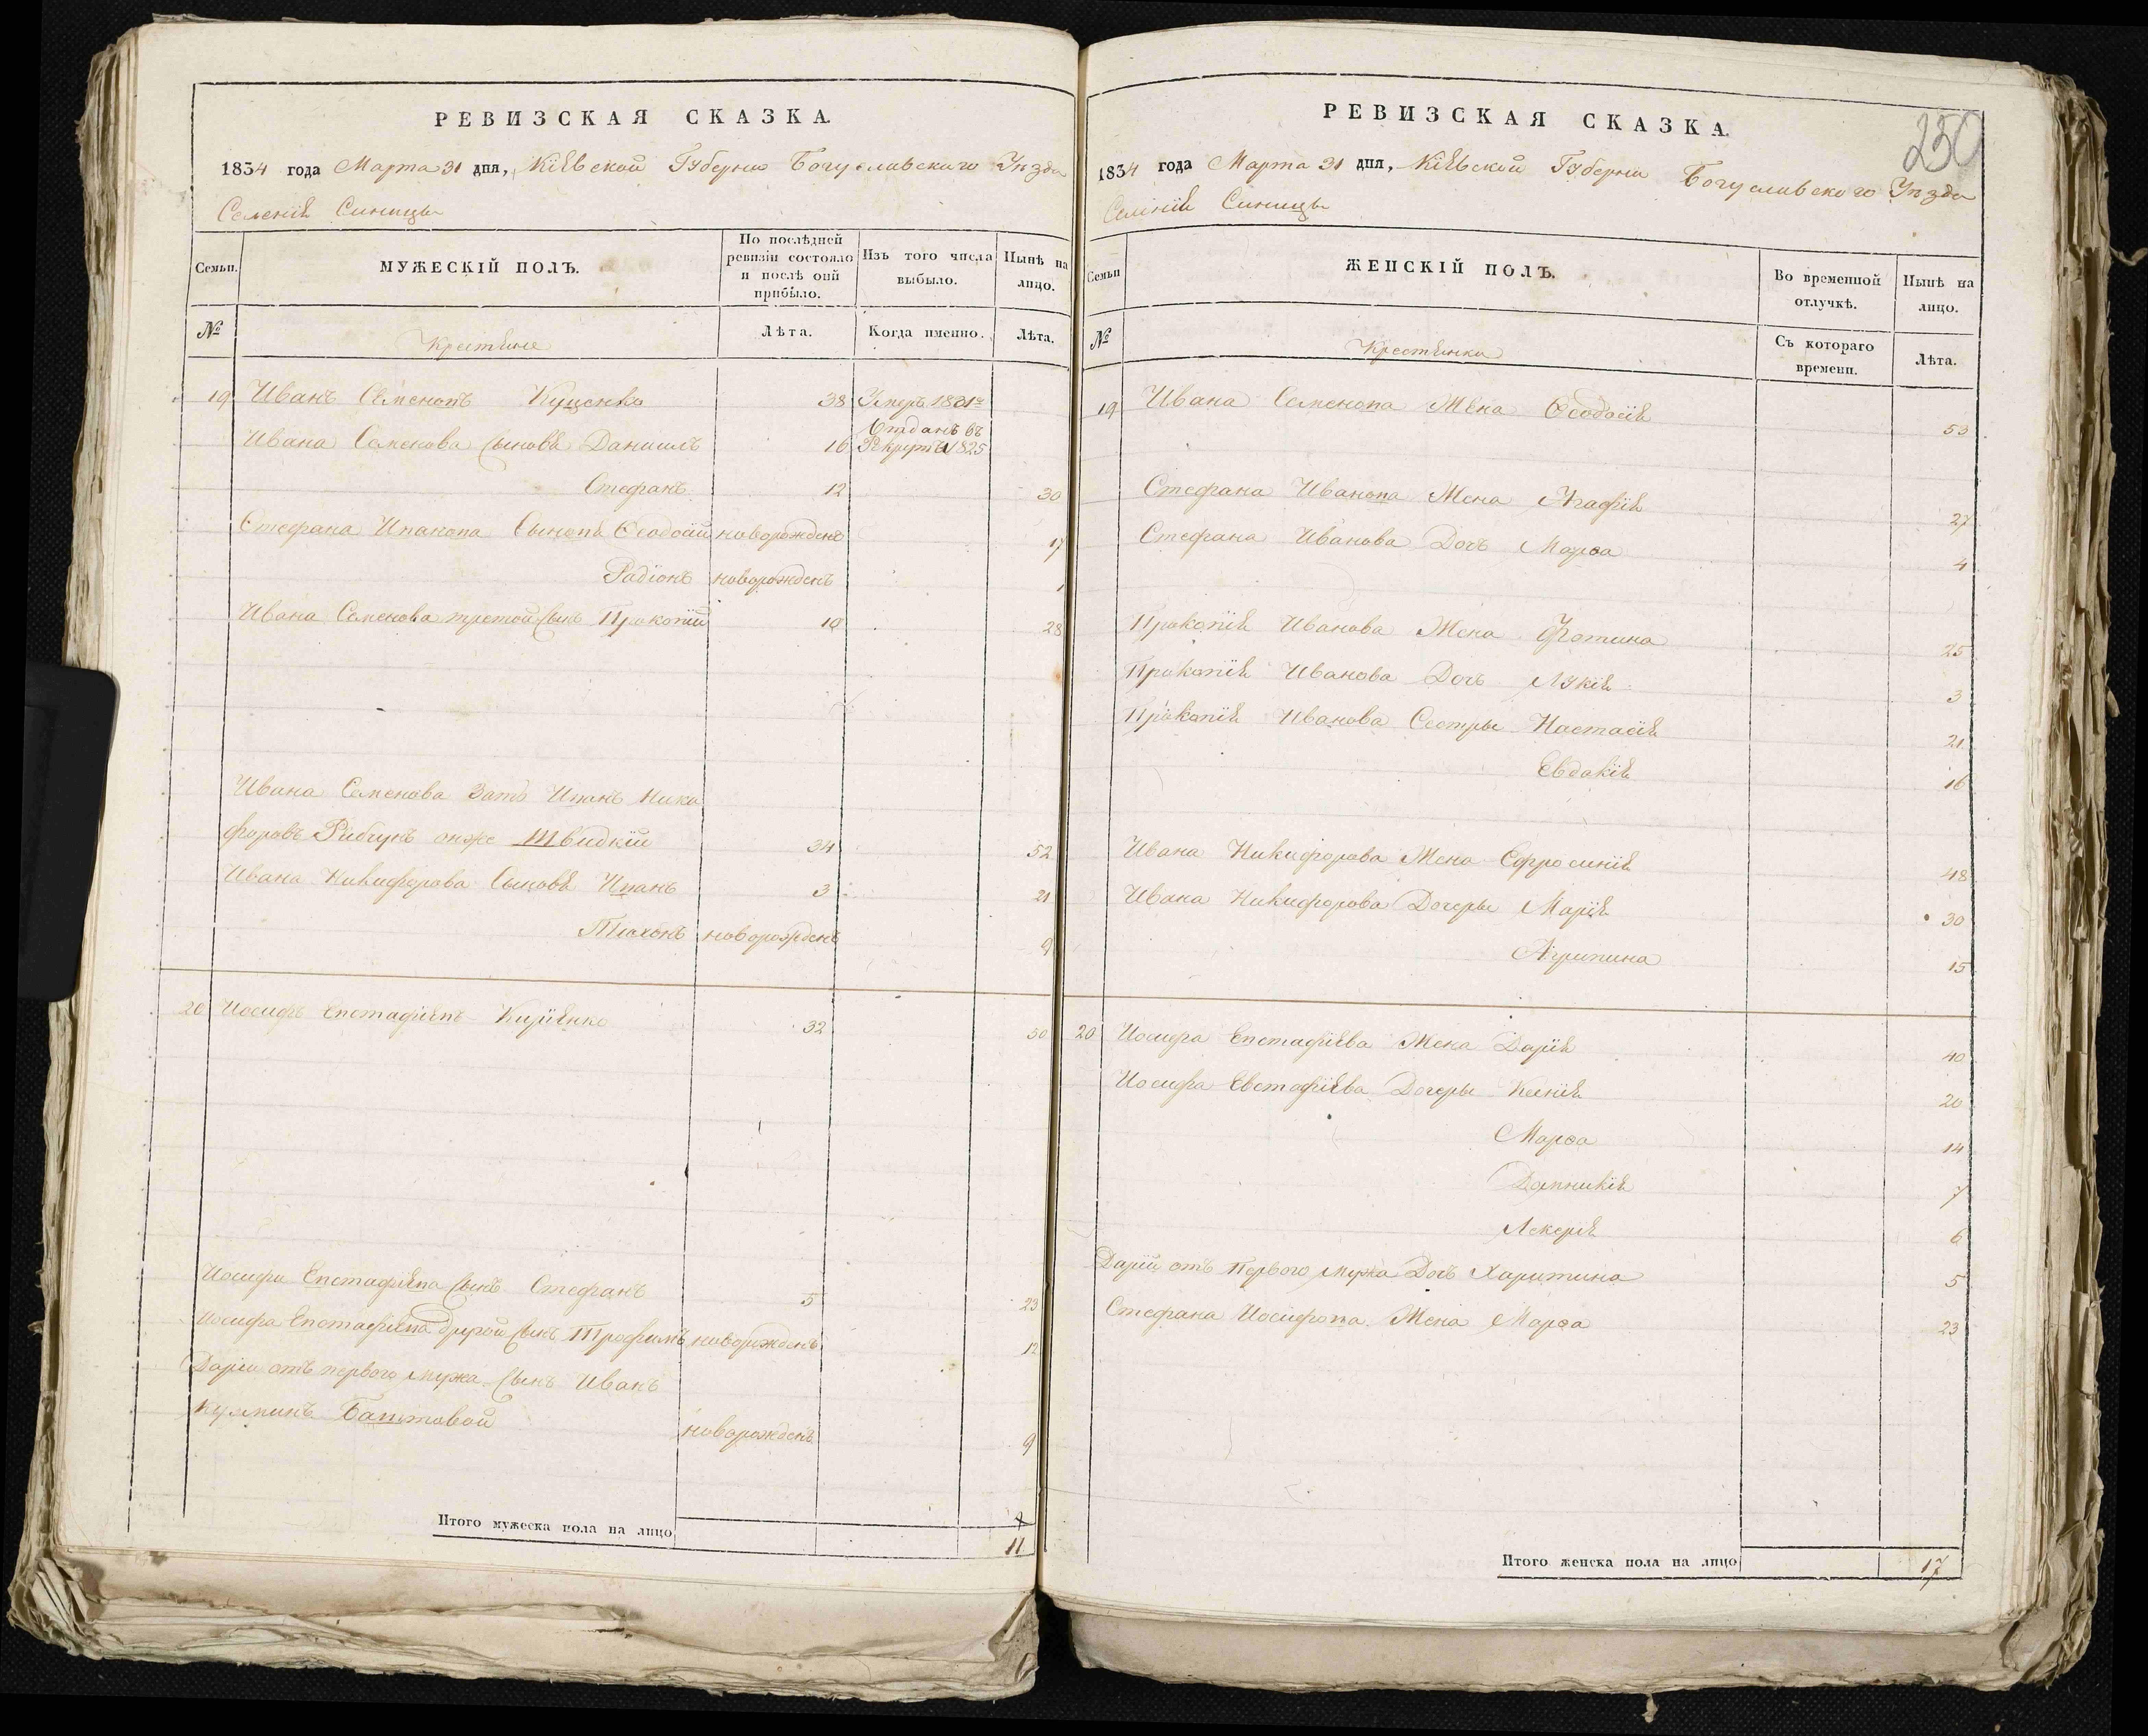 РЕВИЗСКАЯ СКАЗКА.
1834 года Марта 31 дня, Кіевской Губерніи Богуславскаго Уѣзда
Селенія Синицы
Семьи.
МУЖЕСКІЙ ПОЛЪ.
По послѣдней ревизіи состояло и послѣ оній прибыло.
Изъ того числа выбыло.
Нынѣ на лицо.
№
Крестьяне
Лѣта.
Когда именно.
Лѣта.
19 Иванъ Семеновъ Куценко 38 Умеръ 1831го
Ивана Семенова сыновя Даниилъ 16 Отданъ въ Рекруты 1825
Стефанъ 12 30
Стефана Иванова Сыновя Ѳеодосій новорожденъ 17
Радіонъ новорожденъ 1
Ивана Семенова третой сынъ Прокопій 10 28
Ивана Семенова Зать Иванъ Ники
форовъ Рибчукъ онже Швидкій 34 52
Ивана Никифорова Сыновя Иванъ 3 21
Тихонъ новорожденъ 9
20 Иосифъ Евстафіевъ 32 50
Иосифа Евстафіева сынъ Стефанъ 5 23
Иосифа Евстафіева другой сынъ Трофимъ новорожденъ 12
Даріи отъ первого мужа сынъ Иванъ
новорожденъ 9
Итого мужеска пола на лицо 11
РЕВИЗСКАЯ СКАЗКА.
250
1834 года Марта 31 дня, Кіевской Губерніи Богуславского Уѣзда
Селенія Синицы
Семьи
ЖЕНСКІЙ ПОЛЪ.
Во временной отлучкѣ.
Нынѣ на лицо.
№
Крестьянки
Съ котораго времени.
Лѣта.
19 Ивана Семенова Жена Ѳеодосія 53
Стефана Иванова Жена Агафія 27
Стефана Иванова Дочь Марѳа 4
Прокопія Иванова Жена Фотина 25
Прокопія Иванова Дочь Лукія 3
Прокопія Иванова Сестры Настасія 21
Евдокія 16
Ивана Никифорова Жена Ефросинія 48
Ивана Никифорова Дочеры Марія 30
Агрипина 15
20 Иосифа Евстафіева Жена Дарія 40
Иосифа Евстафіева Дочеры Ксенія 20
Марѳа 14
Домникія 7
6
Даріи отъ Первого мужа Дочь Харитина 5
Стефана Иосифова Жена Марѳа 23
Итого женска пола на лицо 17